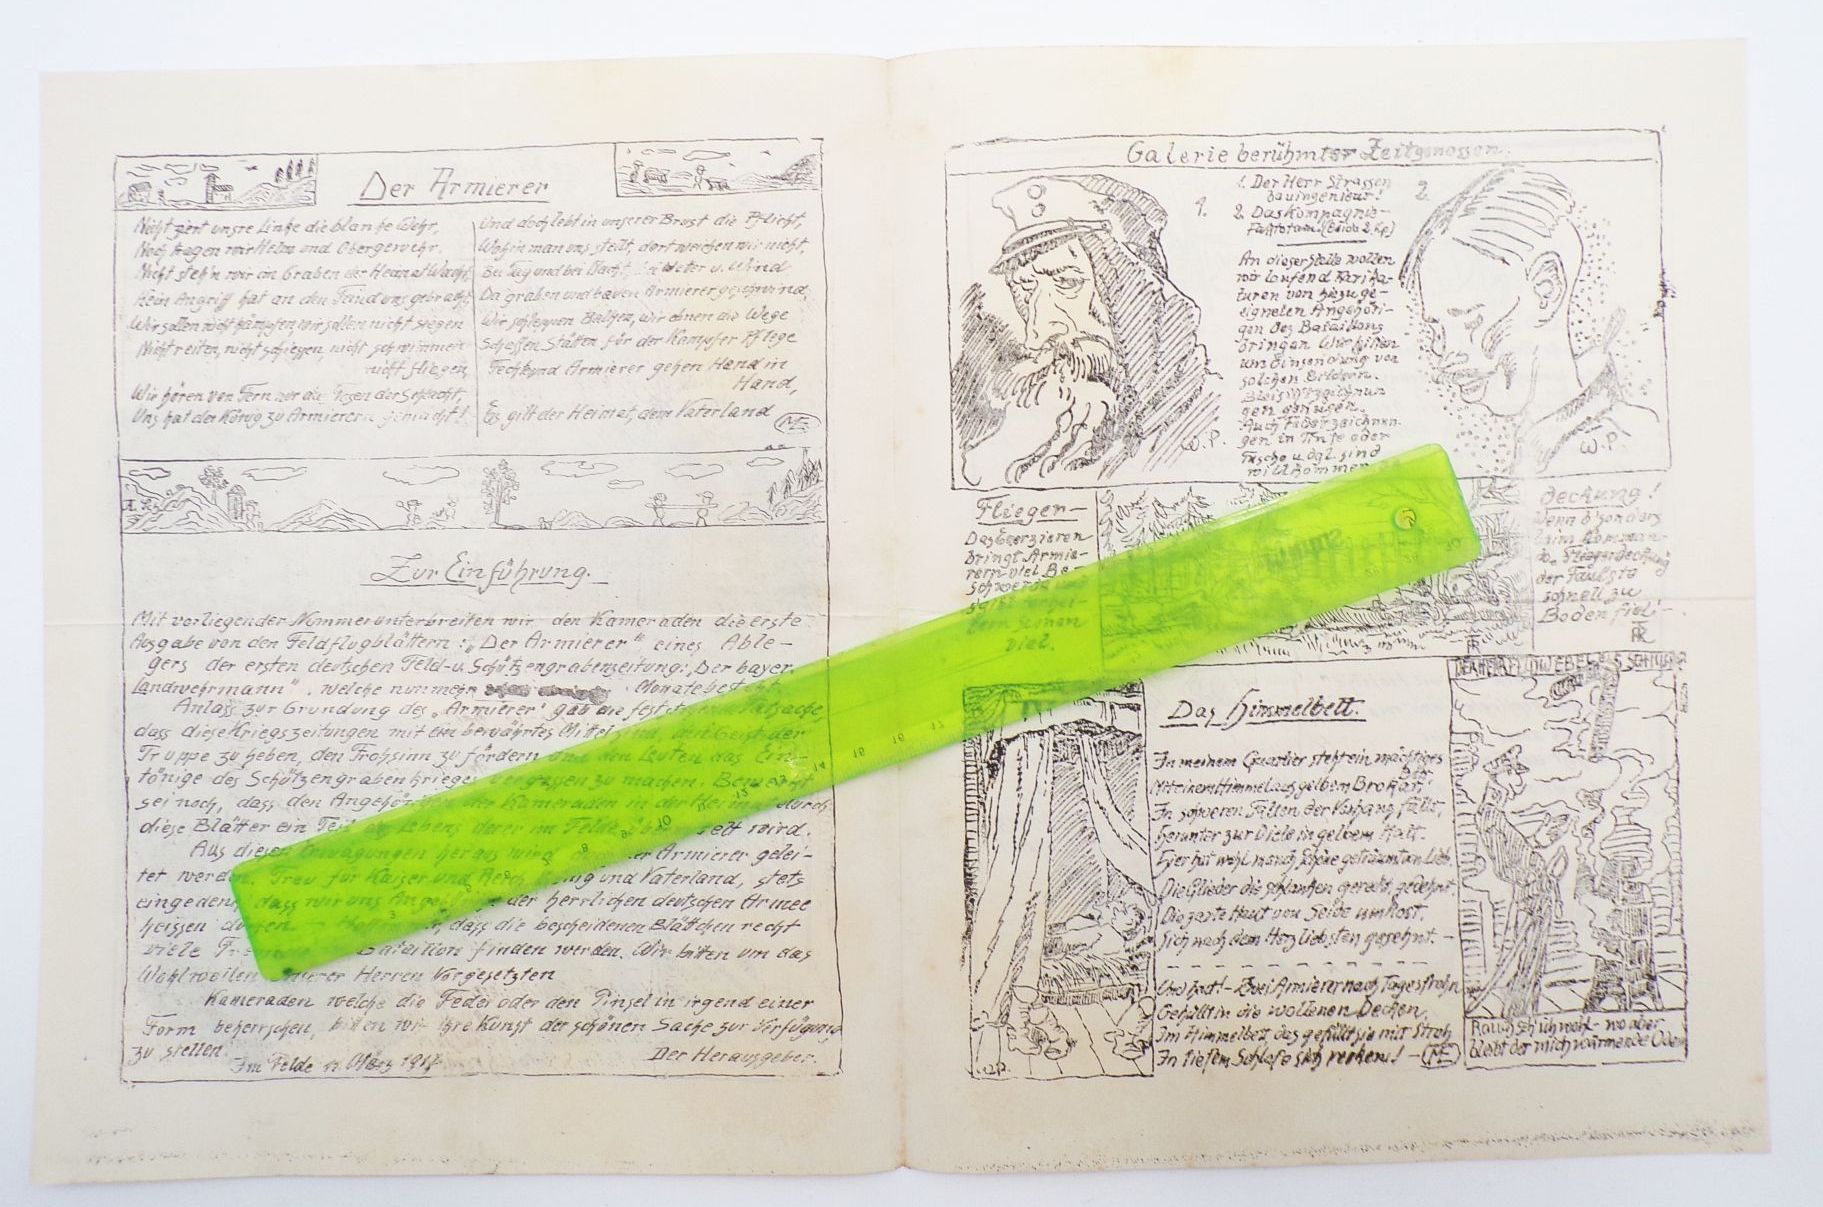 Der Armierer
Nicht ziert unsre Linke die blanke Wehr,
Noch tragen wir Helm und Obergewehr.
Nicht steh'n wir im Graben der Heimat Wacht
Kein Angriff hat an den Feind uns gebracht
Wir sollen nicht kämpfen wir sollen nicht siegen
Nicht reiten, nicht schiessen nicht schwimmen
nicht fliegen,
Wir hören von Fern nur das Tosen der Schlacht,
Uns hat der König zu Armierern gemacht!
Und doch lebt in unserer Brust die Pflicht,
Wohin man uns stellt, dort weichen wir nicht,
Bei Tag und bei Nacht, bei Wetter u. Wind
Da graben und bauen Armierer geschwind,
Wir schleppen Balken, wir ebnen die Wege
Schaffen Stätten für der Kämpfer Pflege
Fechtend Armierer gehen Hand in
Hand,
Es gilt der Heimat, dem Vaterland
ME
Zur Einführung.
Mit vorliegender Nummer unterbreiten wir den Kameraden die erste
Ausgabe von den Feldflugblättern: „Der Armierer" eines Able-
gers der ersten deutschen Feld- u. Schützengrabenzeitung: „Der bayer.
Landwehrmann". welche nunmehr Monate besteht.
Anlass zur Gründung des „Armierer" gab die Tatsache,
dass diese Kriegszeitungen mit ein bewährtes Mittel sind, den Geist der
Truppe zu heben, den Frohsinn zu fördern und den Leuten das Ein-
tönige des Schützengrabenkrieges vergessen zu machen. Bemerkt
sei noch, dass den Angehörigen der Kameraden in der Heimat durch
diese Blätter ein Teil des Lebens derer im Felde wird.
Aus diesen Erwägungen heraus wird der Armierer gelei-
tet werden. Treu für Kaiser und Reich, König und Vaterland, stets
eingedenk dass wir uns Angehörige der herrlichen deutschen Armee
heissen dürfen. — dass die bescheidenen Blättchen recht
viele Freunde Bataillon finden werden. Wir bitten um das
Wohlweilen unserer Herren Vorgesetzten
Kameraden welche die Feder oder den Pinsel in irgend einer
Form beherrschen, bitten wir ihre Kunst der schönen Sache zur Verfügung
zu stellen.
Im Felde März
Der Herausgeber.
Galerie berühmter Zeitgenossen.
1.
1. Der Herr Strassen
bauingenieur!
2. Das Kompagnie-
Faktotum.
2.
An dieser Stelle wollen
wir laufend Karika-
turen von hiezu ge-
eigneten Angehöri-
gen des Bataillons
bringen. Wir bitten
um Einsendung von
solchen Bildern.
Bleistiftzeichnun
gen genügen.
Auch Federzeichnun-
gen in Tinte oder
Tusche u. dgl. sind
willkommen
W.P.
W.P.
Flieger-
Das Exerzieren
bringt Armie-
rern viel Be-
schwerde und
viel.
deckung!
Wenn b'sonders
beim Komman-
do „Fliegerdeckung"
der Faulste
schnell zu
Boden fiel! -
Das Himmelbett.
In meinem Quartier steht ein mächtiges Bett
Mit einem Himmel aus gelbem Brokat.
In schweren Falten der Vorhang fällt,
Herunter zur Diele in gelbem Halt.
Hier hat wohl manch schöne geträumt an Lieb,
Die Glieder die schlanken gereckt, gedehnt.
Die zarte Haut von Seide umkost,
Sich nach dem Herzliebsten gesehnt. —
Und heut! - Zwei Armierer nach Tagesfrohn
Gehüllt in die wollenen Decken,
Im Himmelbett, das gefüllt sie mit Stroh,
In tiefem Schlafe sich recken! — ME
Rauch seh ich wohl - wo aber
bleibt der mich wärmende Ofen